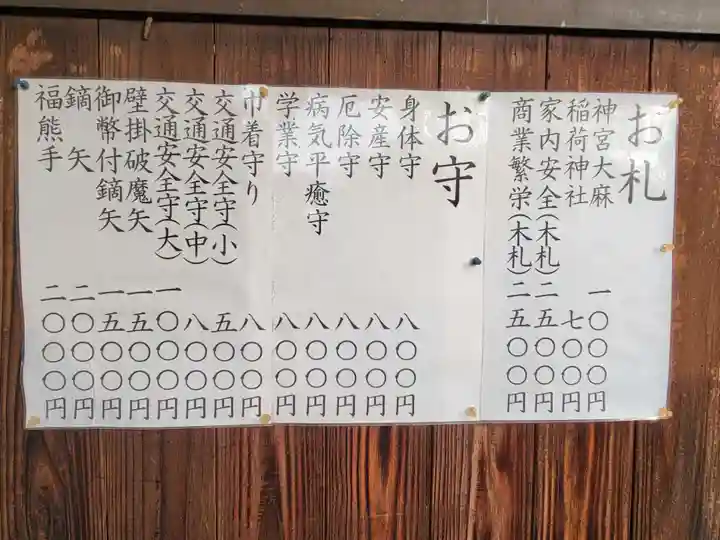 お札
神宮大麻 一〇〇〇円
稲荷神社 七〇〇円
家内安全(木札) 二五〇〇円
商業繁栄(木札) 二五〇〇円
お守
身体守 八〇〇円
安産守 八〇〇円
厄除守 八〇〇円
病気平癒守 八〇〇円
学業守 八〇〇円
巾着守り 八〇〇円
交通安全守(小) 五〇〇円
交通安全守(中) 八〇〇円
交通安全守(大) 一〇〇〇円
壁掛破魔矢 一五〇〇円
御幣付鏑矢 一五〇〇円
鏑矢 二〇〇〇円
福熊手 二〇〇〇円